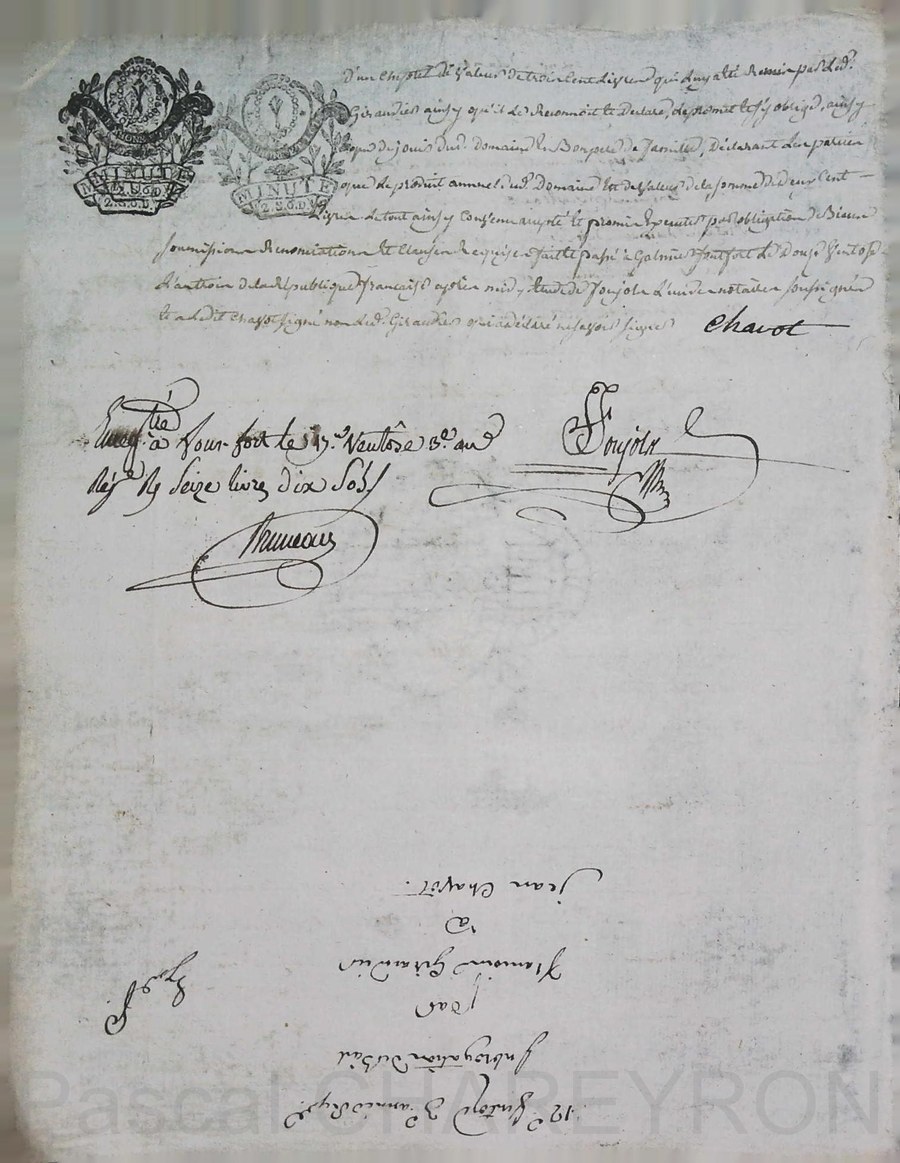 MINUTE
2.S.6.D.
MINUTE
2.S.6.D.
D'un Cheptel de valeur de trois cent Livres qui luy a été Remis par led.
Giraudier ainsy qu'il le Reconnoit et Declare, de promet et s'y oblige, ainsy
que de jouir dud. domaine en Bon pere de famille, Déclarant les parties
que le produit annuel dud. Domaine est de valeur de la somme de deux Cent
Livres le tout ainsy Convenu accepté et promis Executer par obligation de Biens
soumissions Renonciations et Clauses Requises fait et passé à Galmier fontfort le Douze Ventose
L'an trois de la République française après midy Etude de Soujoln L'un des notaires soussignés
et a ledit Chavot signé non led. Giraudier qui a déclaré ne savoir signer
Chavot
Enregtré à Font-fort le 17.e Ventôse 3.e année
Rép.e Rs Seize livres dix Sols
Soujoln
Bruneau
12e Ventose 3e année Rep.e
Subrogation de Bail
par
Giraudier
a
Jean Chavot.
Pascal CHAREYRON